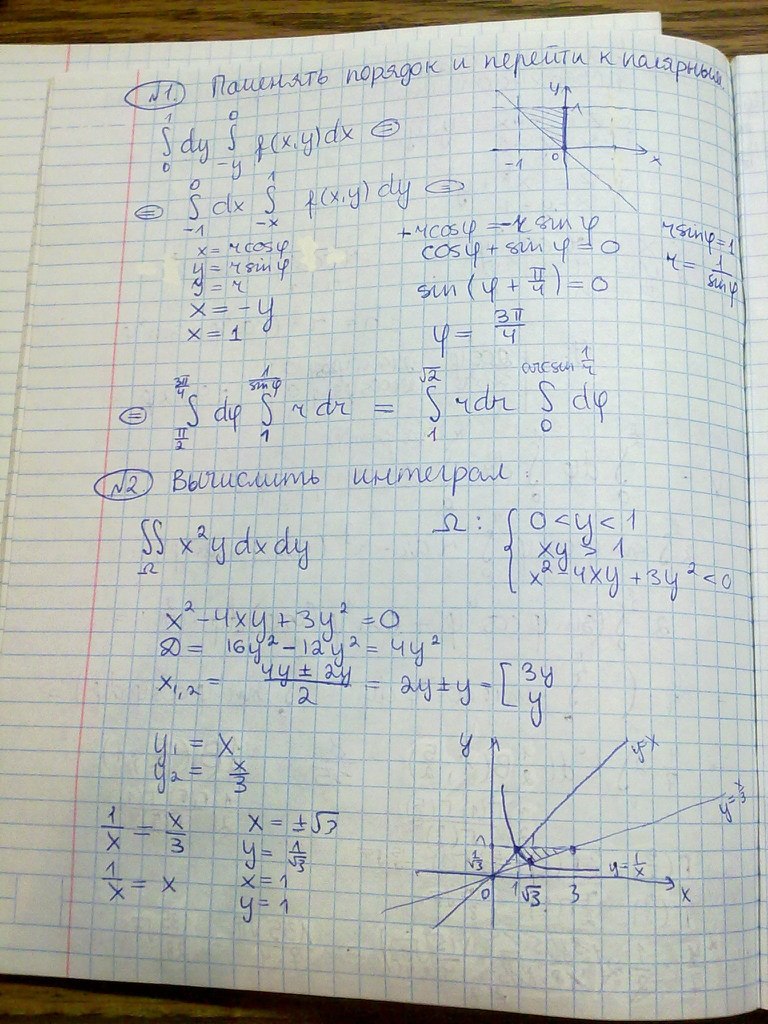 №1. Поменять порядок и перейти к полярным.
∫₀¹ dy ∫₋ᵧ⁰ f(x,y)dx =
y
1
-1 0 x
= ∫₋₁⁰ dx ∫₋ₓ¹ f(x,y) dy =
x = r cos φ
y = r sin φ
y = r
x = -y
x = 1
+r cos φ = -r sin φ
cos φ + sin φ = 0
sin (φ + π/4) = 0
φ = 3π/4
r sin φ = 1
r = 1/sin φ
= ∫_{π/2}^{3π/4} dφ ∫_1^{1/sin φ} r dr = ∫_1^{√2} r dr ∫_0^{arcsin 1/r} dφ
№2 Вычислить интеграл
∬_Ω x²y dx dy
Ω: { 0 < y < 1
xy > 1
x² - 4xy + 3y² < 0
x² - 4xy + 3y² = 0
D = 16y² - 12y² = 4y²
x₁,₂ = (4y ± 2y)/2 = 2y ± y = [ 3y
y
y₁ = x
y₂ = x/3
1/x = x/3
1/x = x
x = ±√3
y = 1/√3
x = 1
y = 1
y
y=x
y=x/3
1
1/√3
y=1/x
0 1 √3 3 x